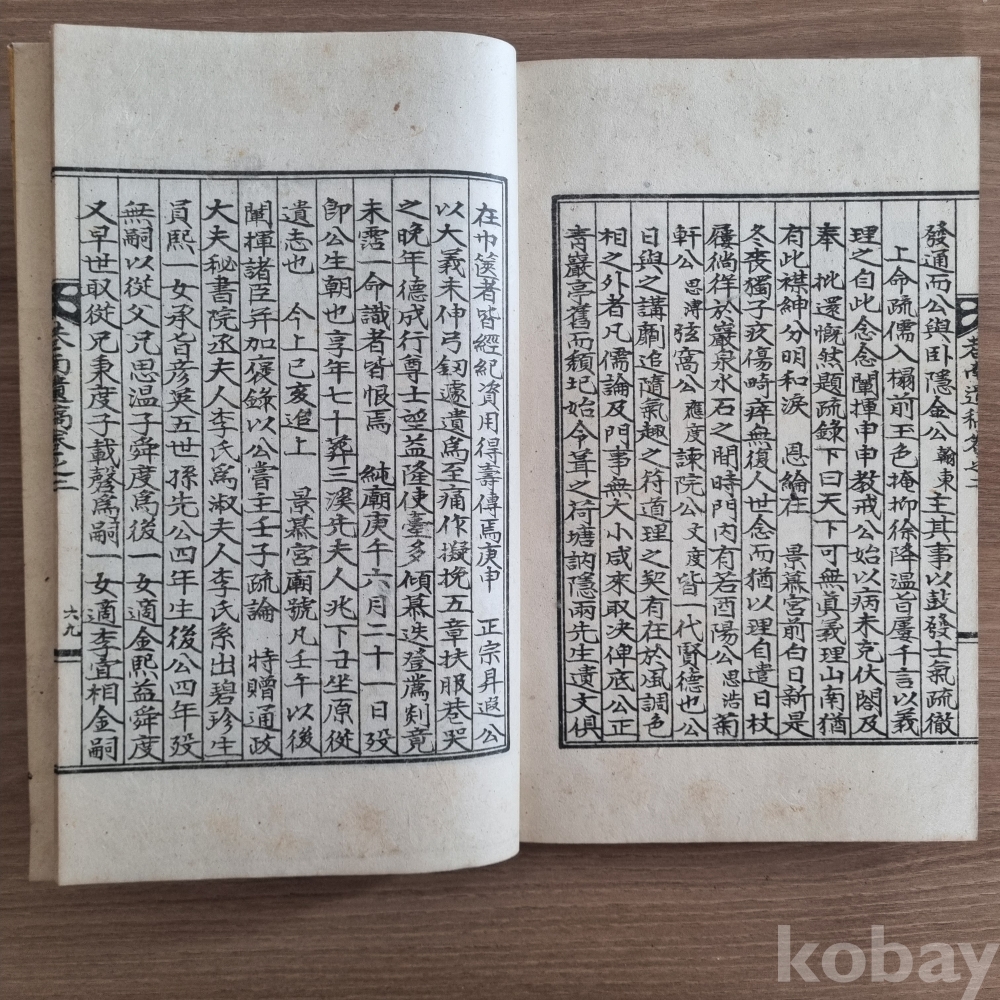 發通而公與臥隱金公翰東主其事以鼓發士氣疏徹
上命疏儒入榻前玉色掩抑徐降溫旨屢千言以義
理之自此念念闡揮申申教戒公始以病未克伏閤及
奉 批還慨然題疏錄下曰天下可無眞義理山南猶
有此襟紳分明和淚 恩綸在 景慕宮前白日新是
冬喪獨子疚傷畸瘁無復人世念而猶以理自遣日杖
屨徜徉於巖泉水石之間時門內有若酉陽公思浩菊
軒公思溥弦窩公應度諫院公文度皆一代賢德也公
日與之講劘追隨氣趣之符道理之契有在於風調色
相之外者凡儒論及門事無大小咸來取决俾底公正
靑巖亭舊而頹圮始令葺之荷塘訥隱兩先生遺文俱
在巾篋者皆經紀資用得壽傳焉庚申 正宗昇遐公
以大義未伸弓釰遽遺爲至痛作擬挽五章扶服巷哭
之晩年德成行尊士望益隆使臺多傾慕迭登薦剡竟
未霑一命識者皆恨焉 純廟庚午六月二十一日歿
卽公生朝也享年七十葬三溪先夫人兆下丑坐原從
遺志也 今上己亥追上 景慕宮廟號凡壬午以後
闡揮諸臣并加褒錄以公嘗主壬子疏論 特贈通政
大夫秘書院丞夫人李氏爲淑夫人李氏系出碧珍生
員熙一女承旨彦英五世孫先公四年生後公四年歿
無嗣以從父兄思溫子舜度爲後一女適金熙益舜度
又早世取從兄秉度子載馨爲嗣一女適李壹相金嗣
六九
kobay